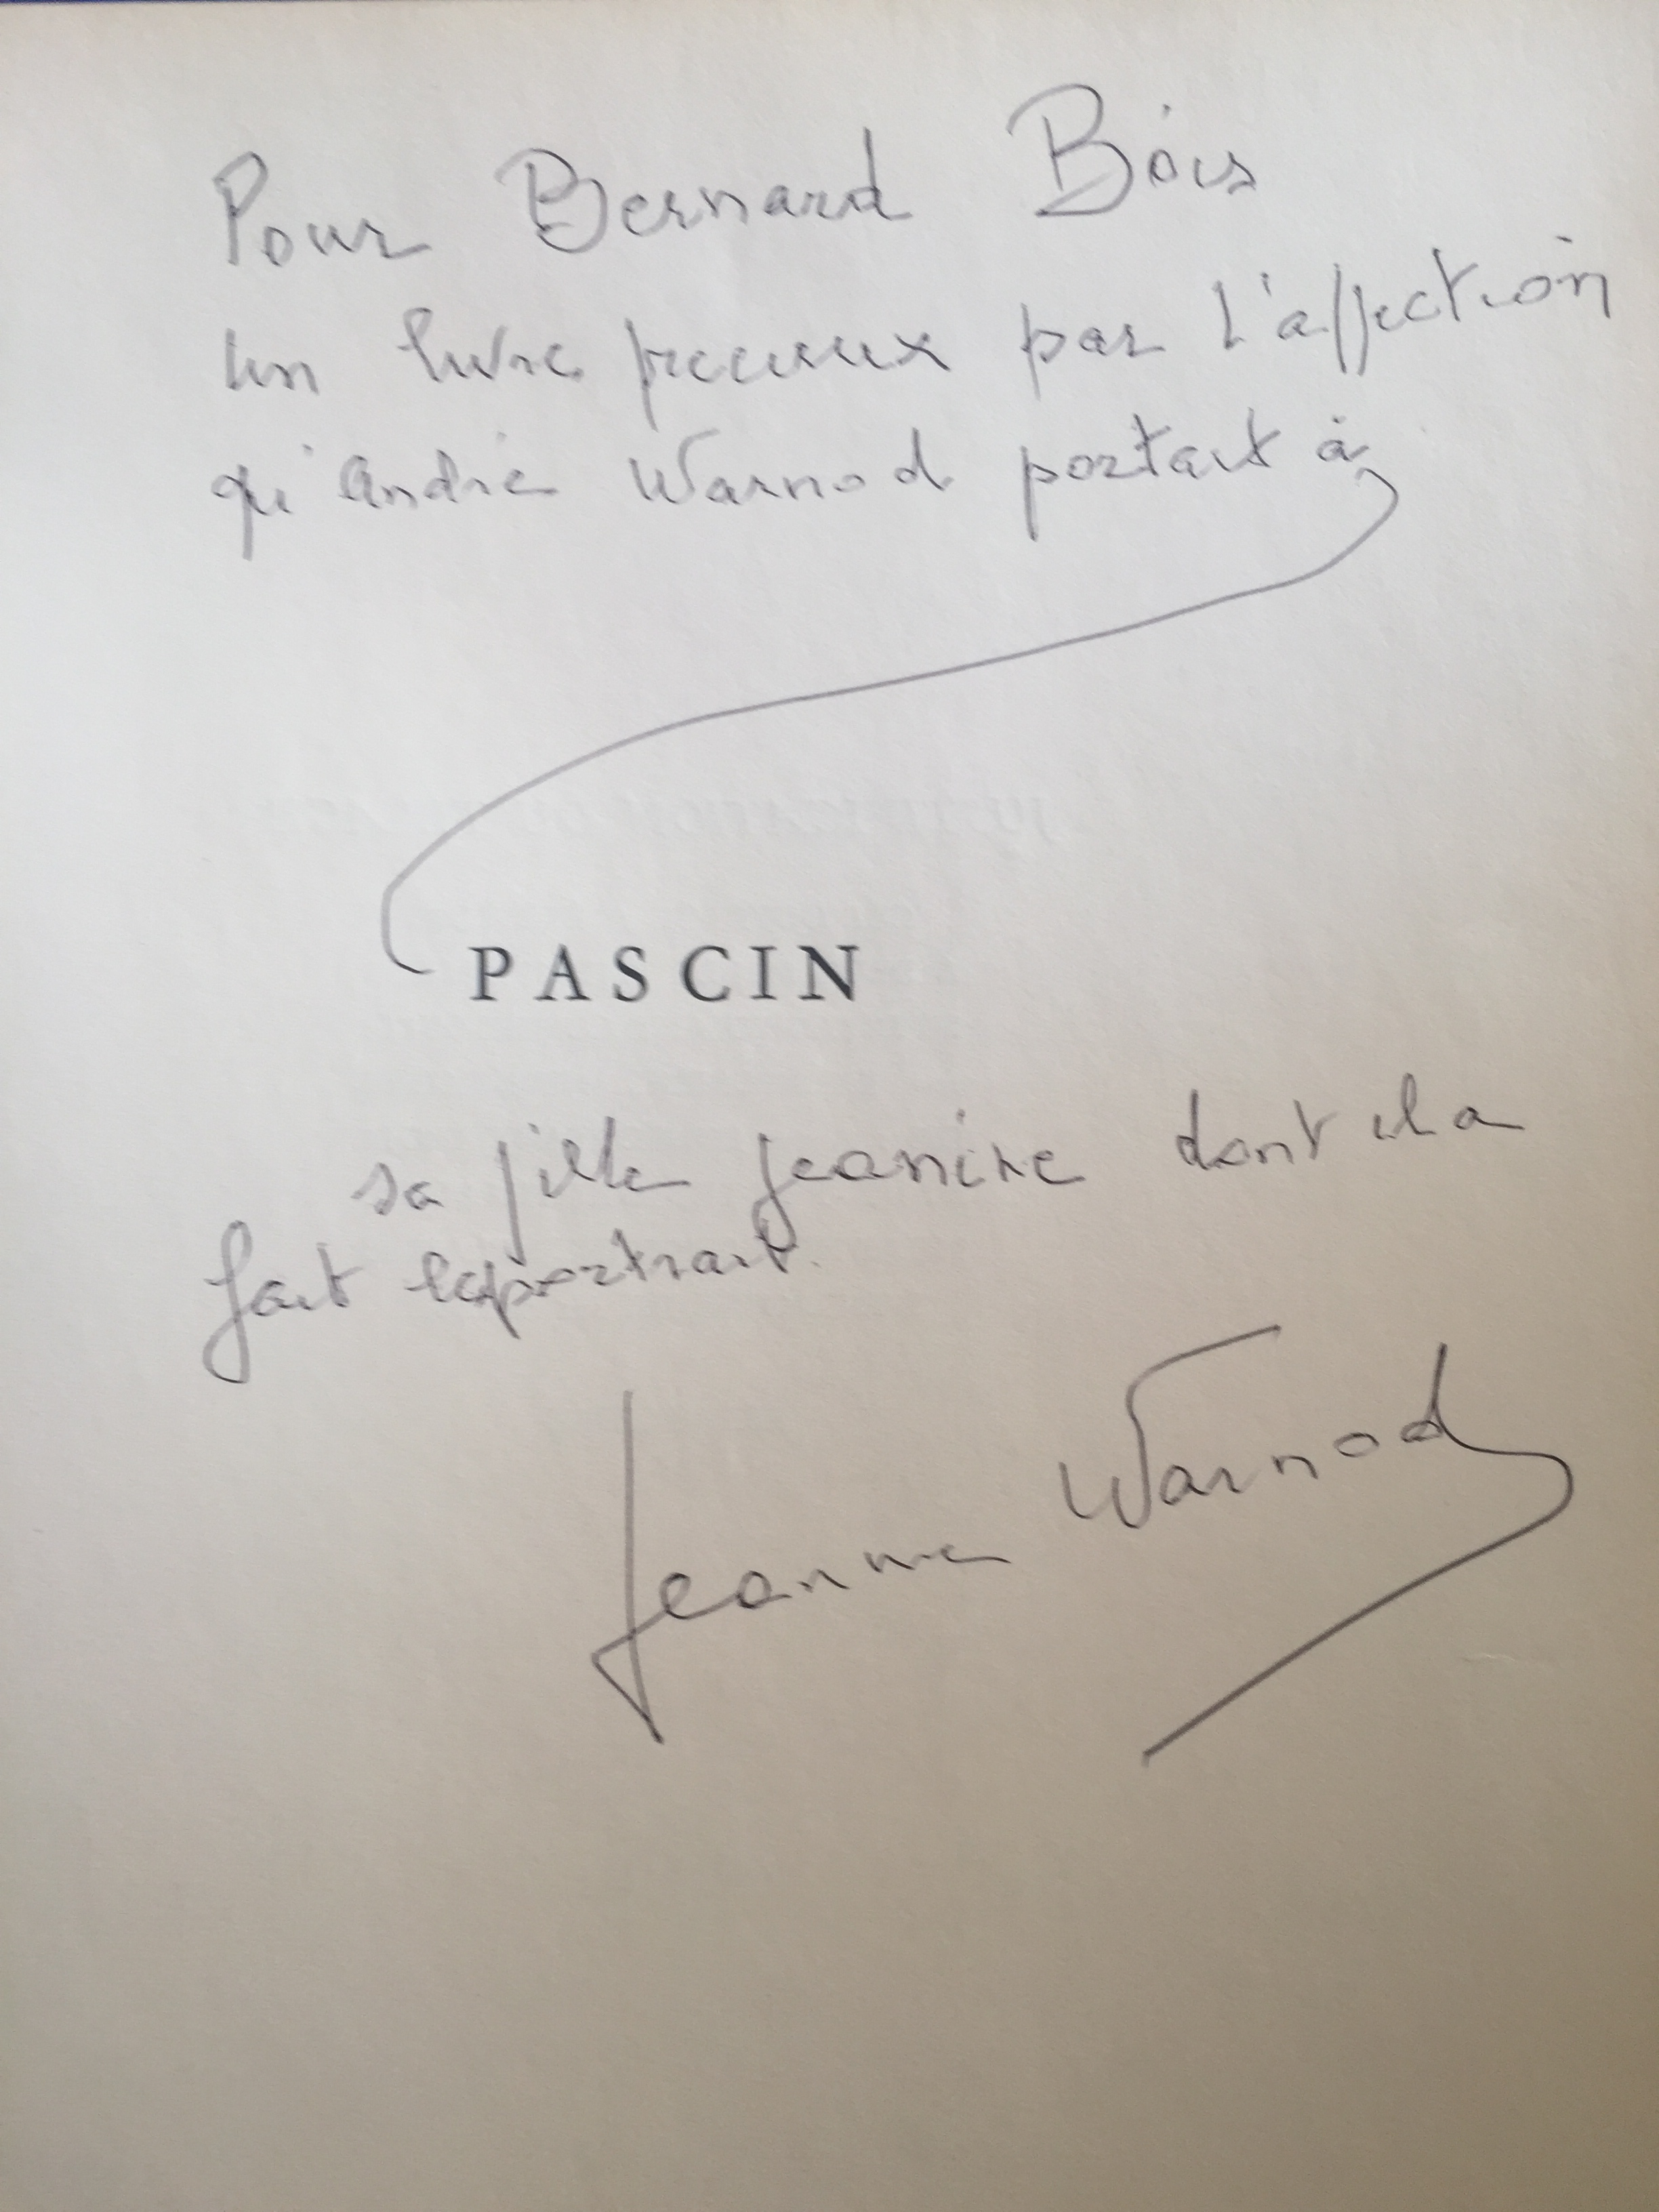 Pour Bernard Bois
Un livre precieux par l'affection
qu'André Warnod portait à
PASCIN
sa fille Jeanine dont il a
fait le portrait.
Jeanine Warnod